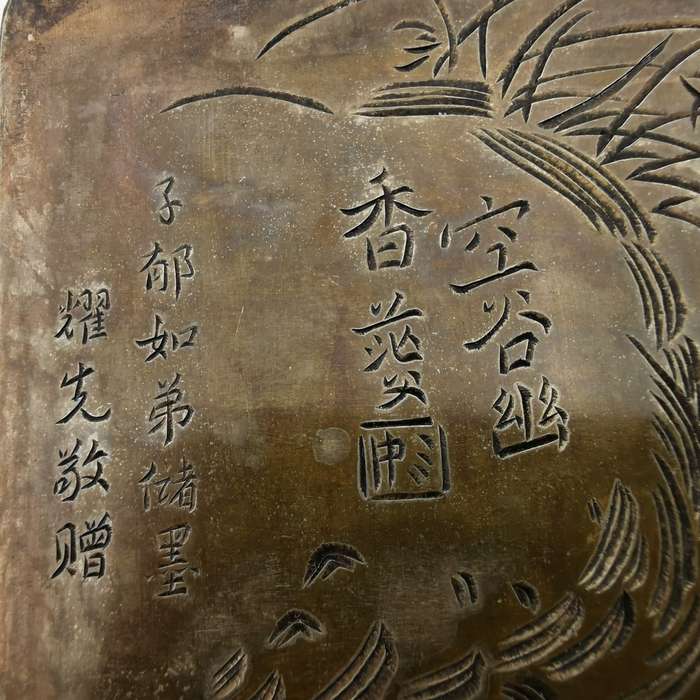 空谷幽
香 茫父
子郁如弟储墨
耀先敬赠